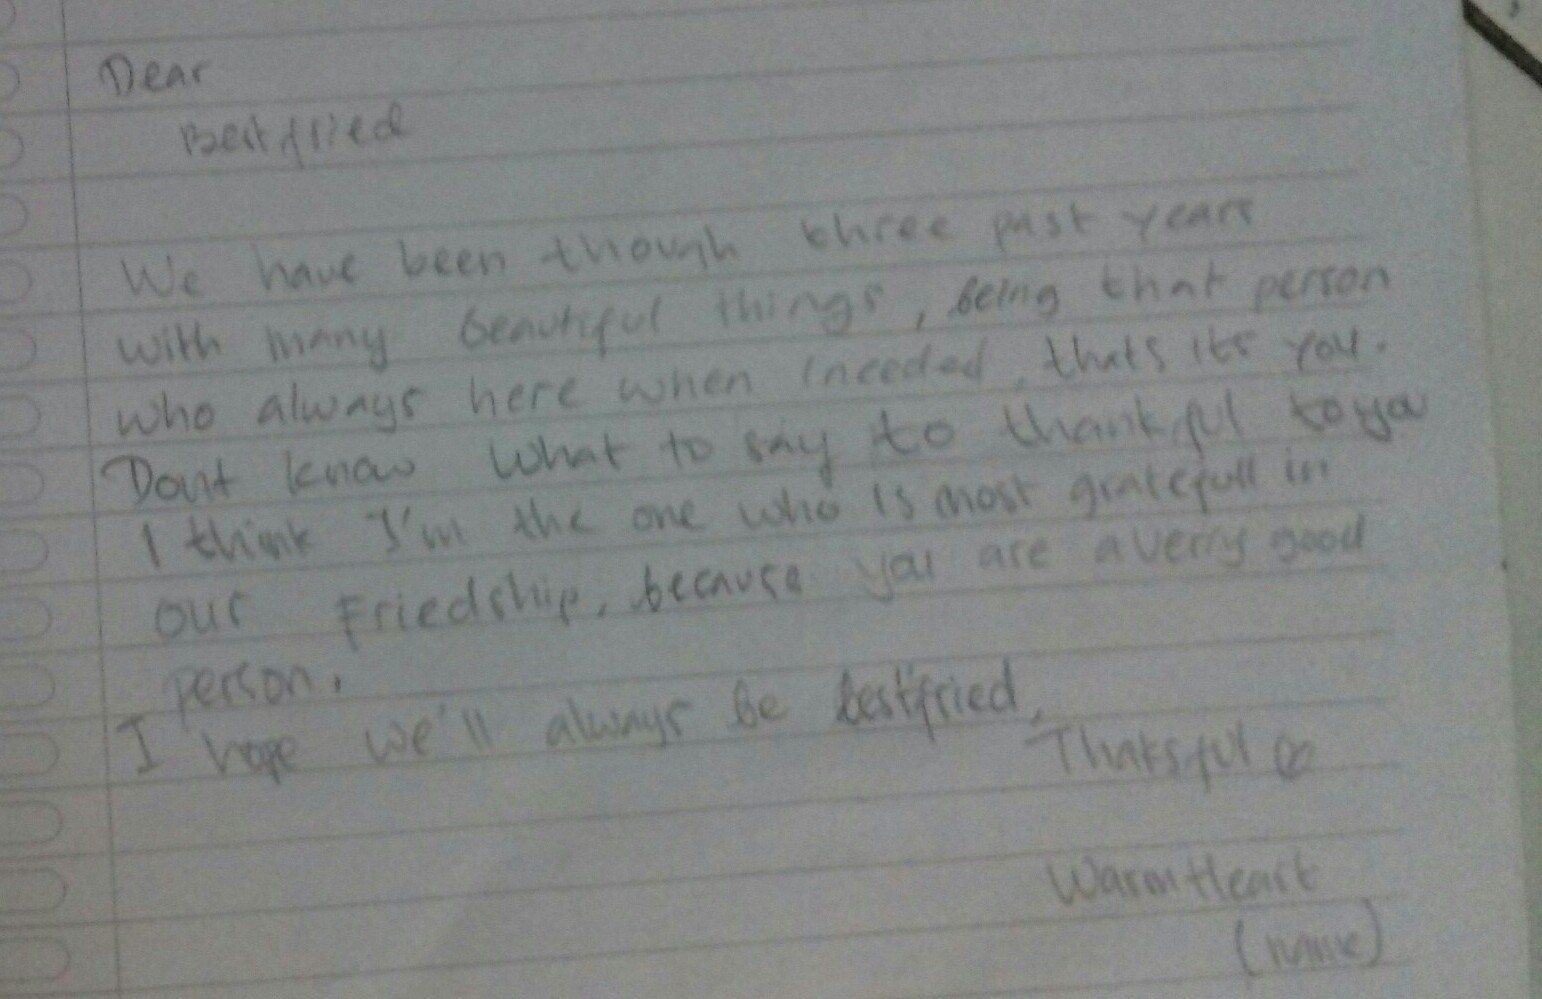 Dear
Bestfried
We have been though three past years
with many beautiful things, being that person
who always here when ineeded, thats its you.
Dont know what to say to thankful to you
I think I'm the one who is most gratefull in
our Friedship, because you are a verry good
person,
I hope we'll always be bestfried,
Thaksful
Warm Heart
(name)